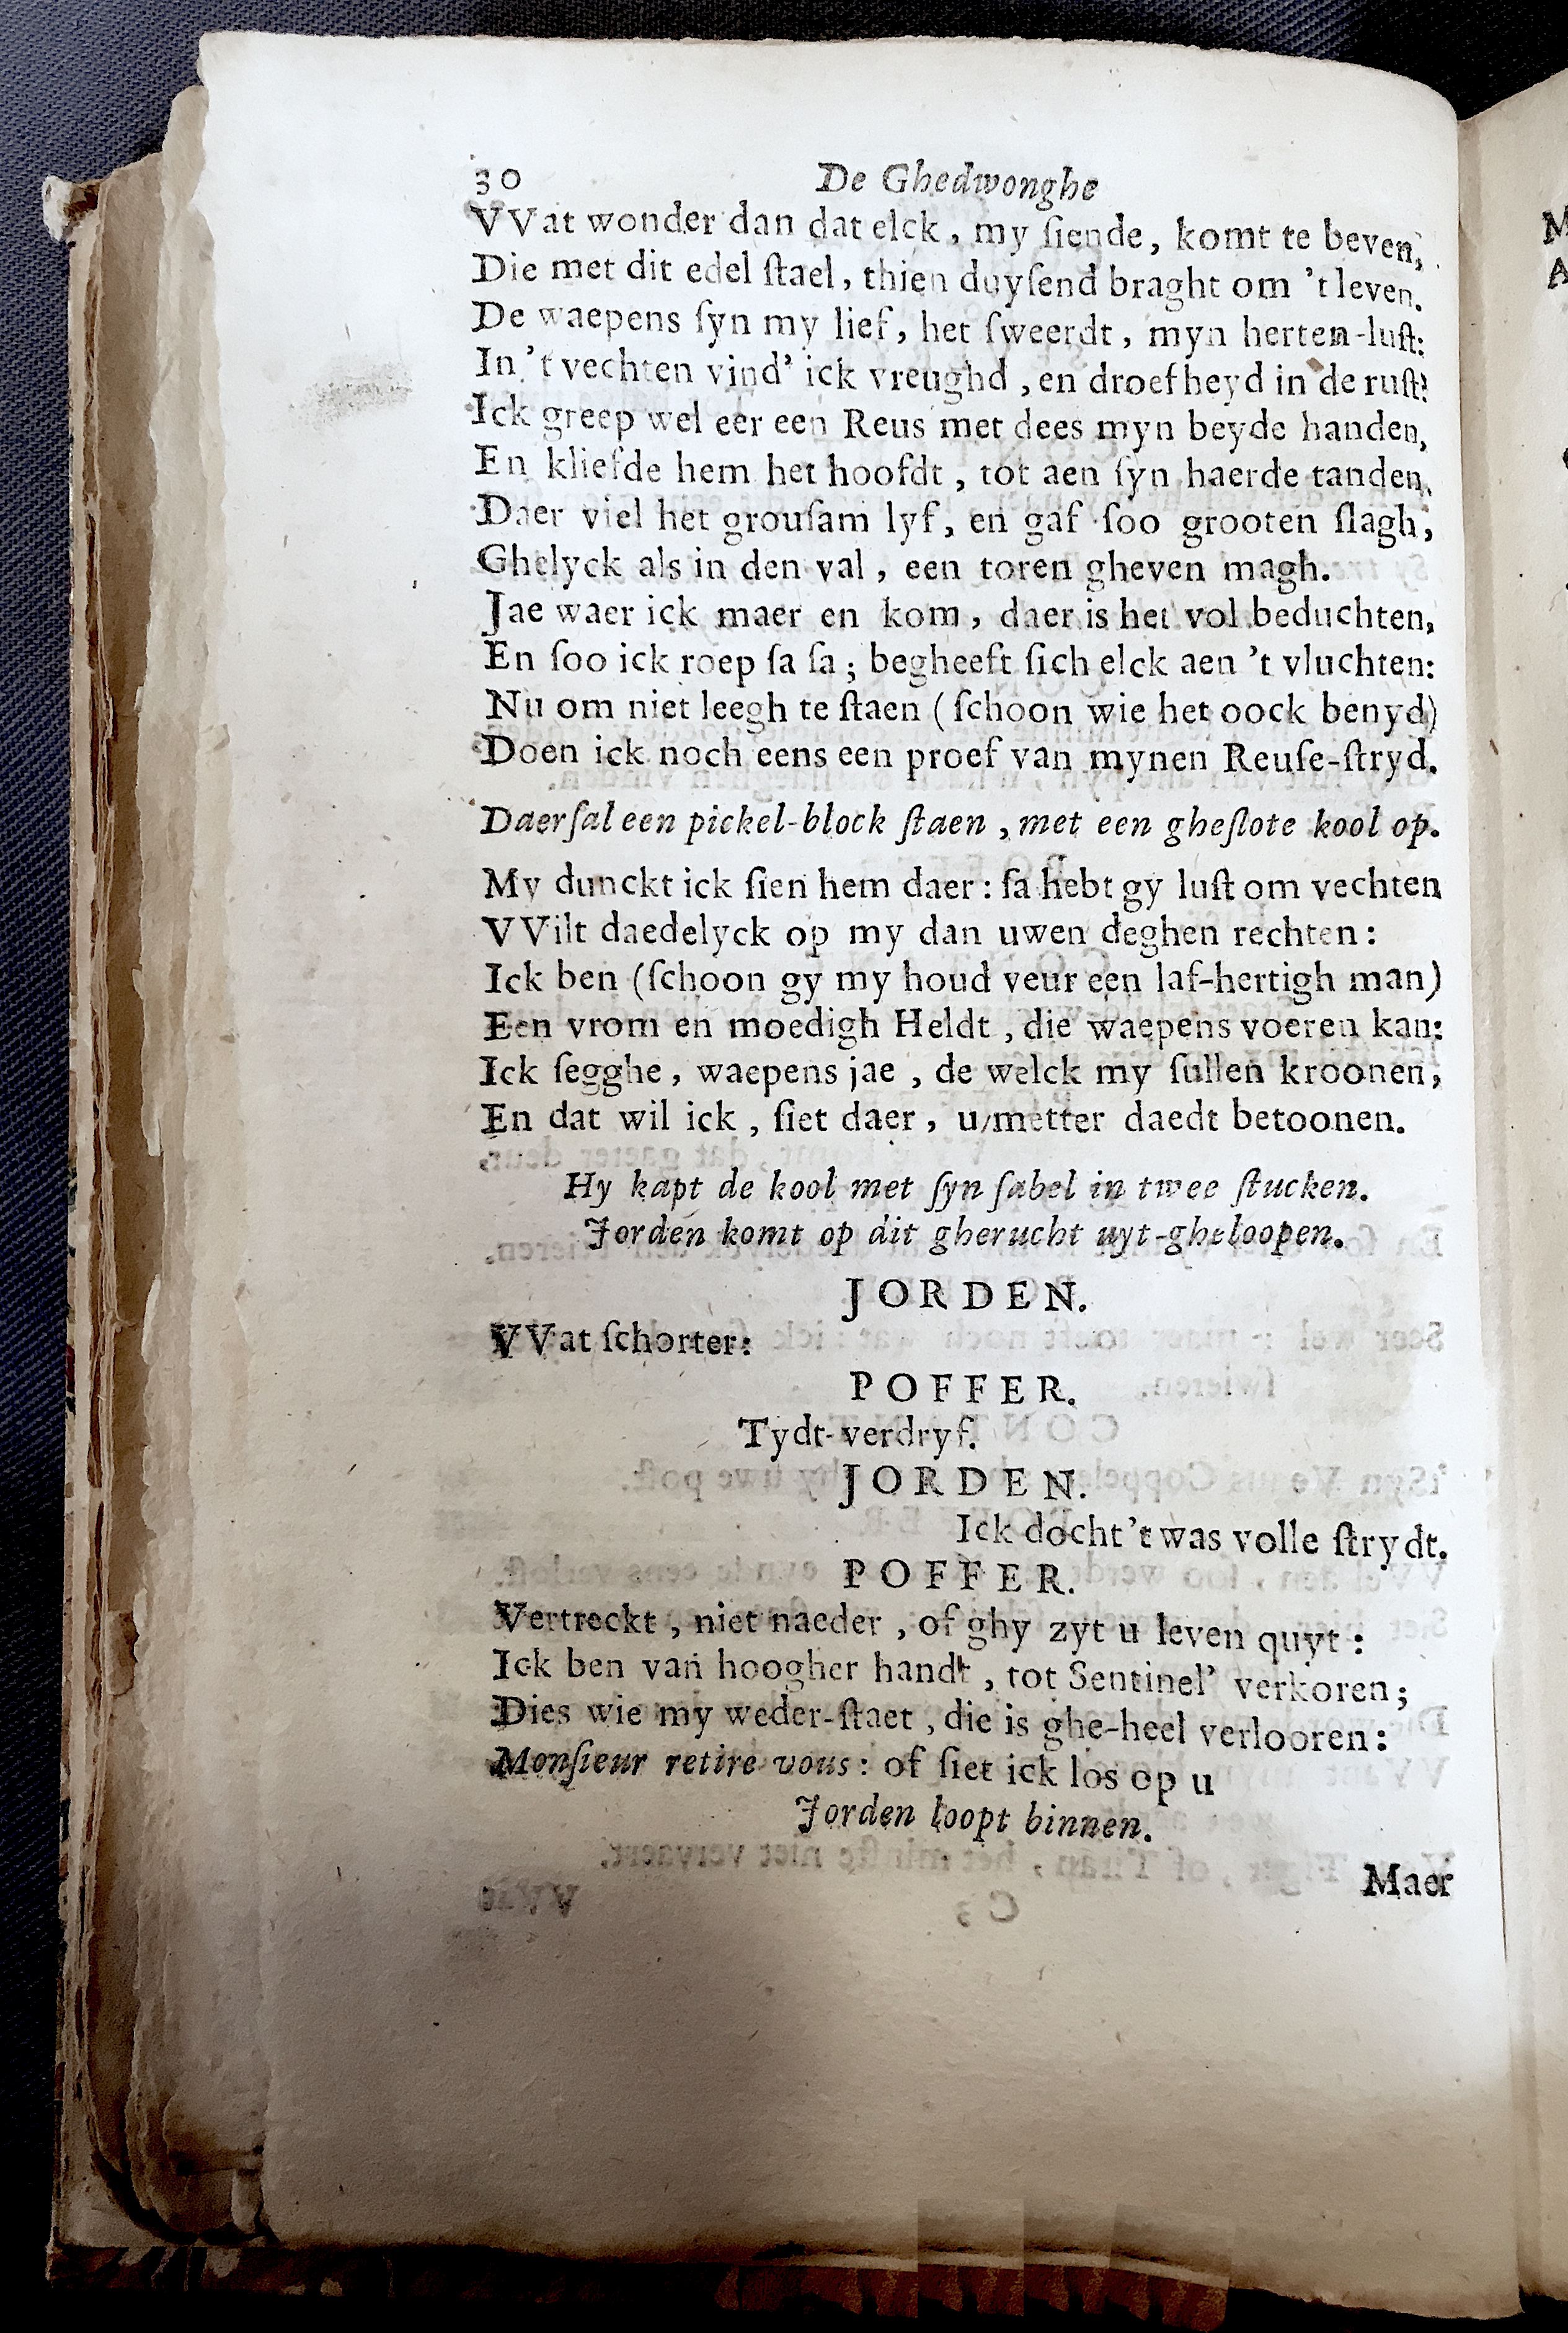 30 De Ghedwonghe
VVat wonder dan dat elck, my ſiende, komt te beven,
Die met dit edel ſtael, thien duyſend braght om 't leven.
De waepens ſyn my lief, het ſweerdt, myn herten-luſt:
In 't vechten vind' ick vreughd, en droefheyd in de ruſt:
Ick greep wel eer een Reus met dees myn beyde handen,
En kliefde hem het hoofdt, tot aen ſyn haerde tanden,
Daer viel het grouſam lyf, en gaf ſoo grooten ſlagh,
Ghelyck als in den val, een toren gheven magh.
Jae waer ick maer en kom, daer is het vol beduchten,
En ſoo ick roep ſa ſa; begheeft ſich elck aen 't vluchten:
Nu om niet leegh te ſtaen (ſchoon wie het oock benyd)
Doen ick noch eens een proef van mynen Reuſe-ſtryd.
Daer ſal een pickel-block ſtaen, met een gheſlote kool op.
My dunckt ick ſien hem daer: ſa hebt gy luſt om vechten
VVilt daedelyck op my dan uwen deghen rechten:
Ick ben (ſchoon gy my houd veur een laf-hertigh man)
Een vrom en moedigh Heldt, die waepens voeren kan:
Ick ſegghe, waepens jae, de welck my ſullen kroonen,
En dat wil ick, ſiet daer, u metter daedt betoonen.
Hy kapt de kool met ſyn ſabel in twee ſtucken.
Jorden komt op dit gherucht uyt-gheloopen.
JORDEN.
VVat ſchorter:
POFFER.
Tydt-verdryf.
JORDEN.
Ick docht 't was volle ſtrydt.
POFFER.
Vertreckt, niet naeder, of ghy zyt u leven quyt:
Ick ben van hoogher handt, tot Sentinel' verkoren;
Dies wie my weder-ſtaet, die is ghe-heel verlooren:
Monſieur retire vous: of ſiet ick los op u
Jorden loopt binnen.
Maer